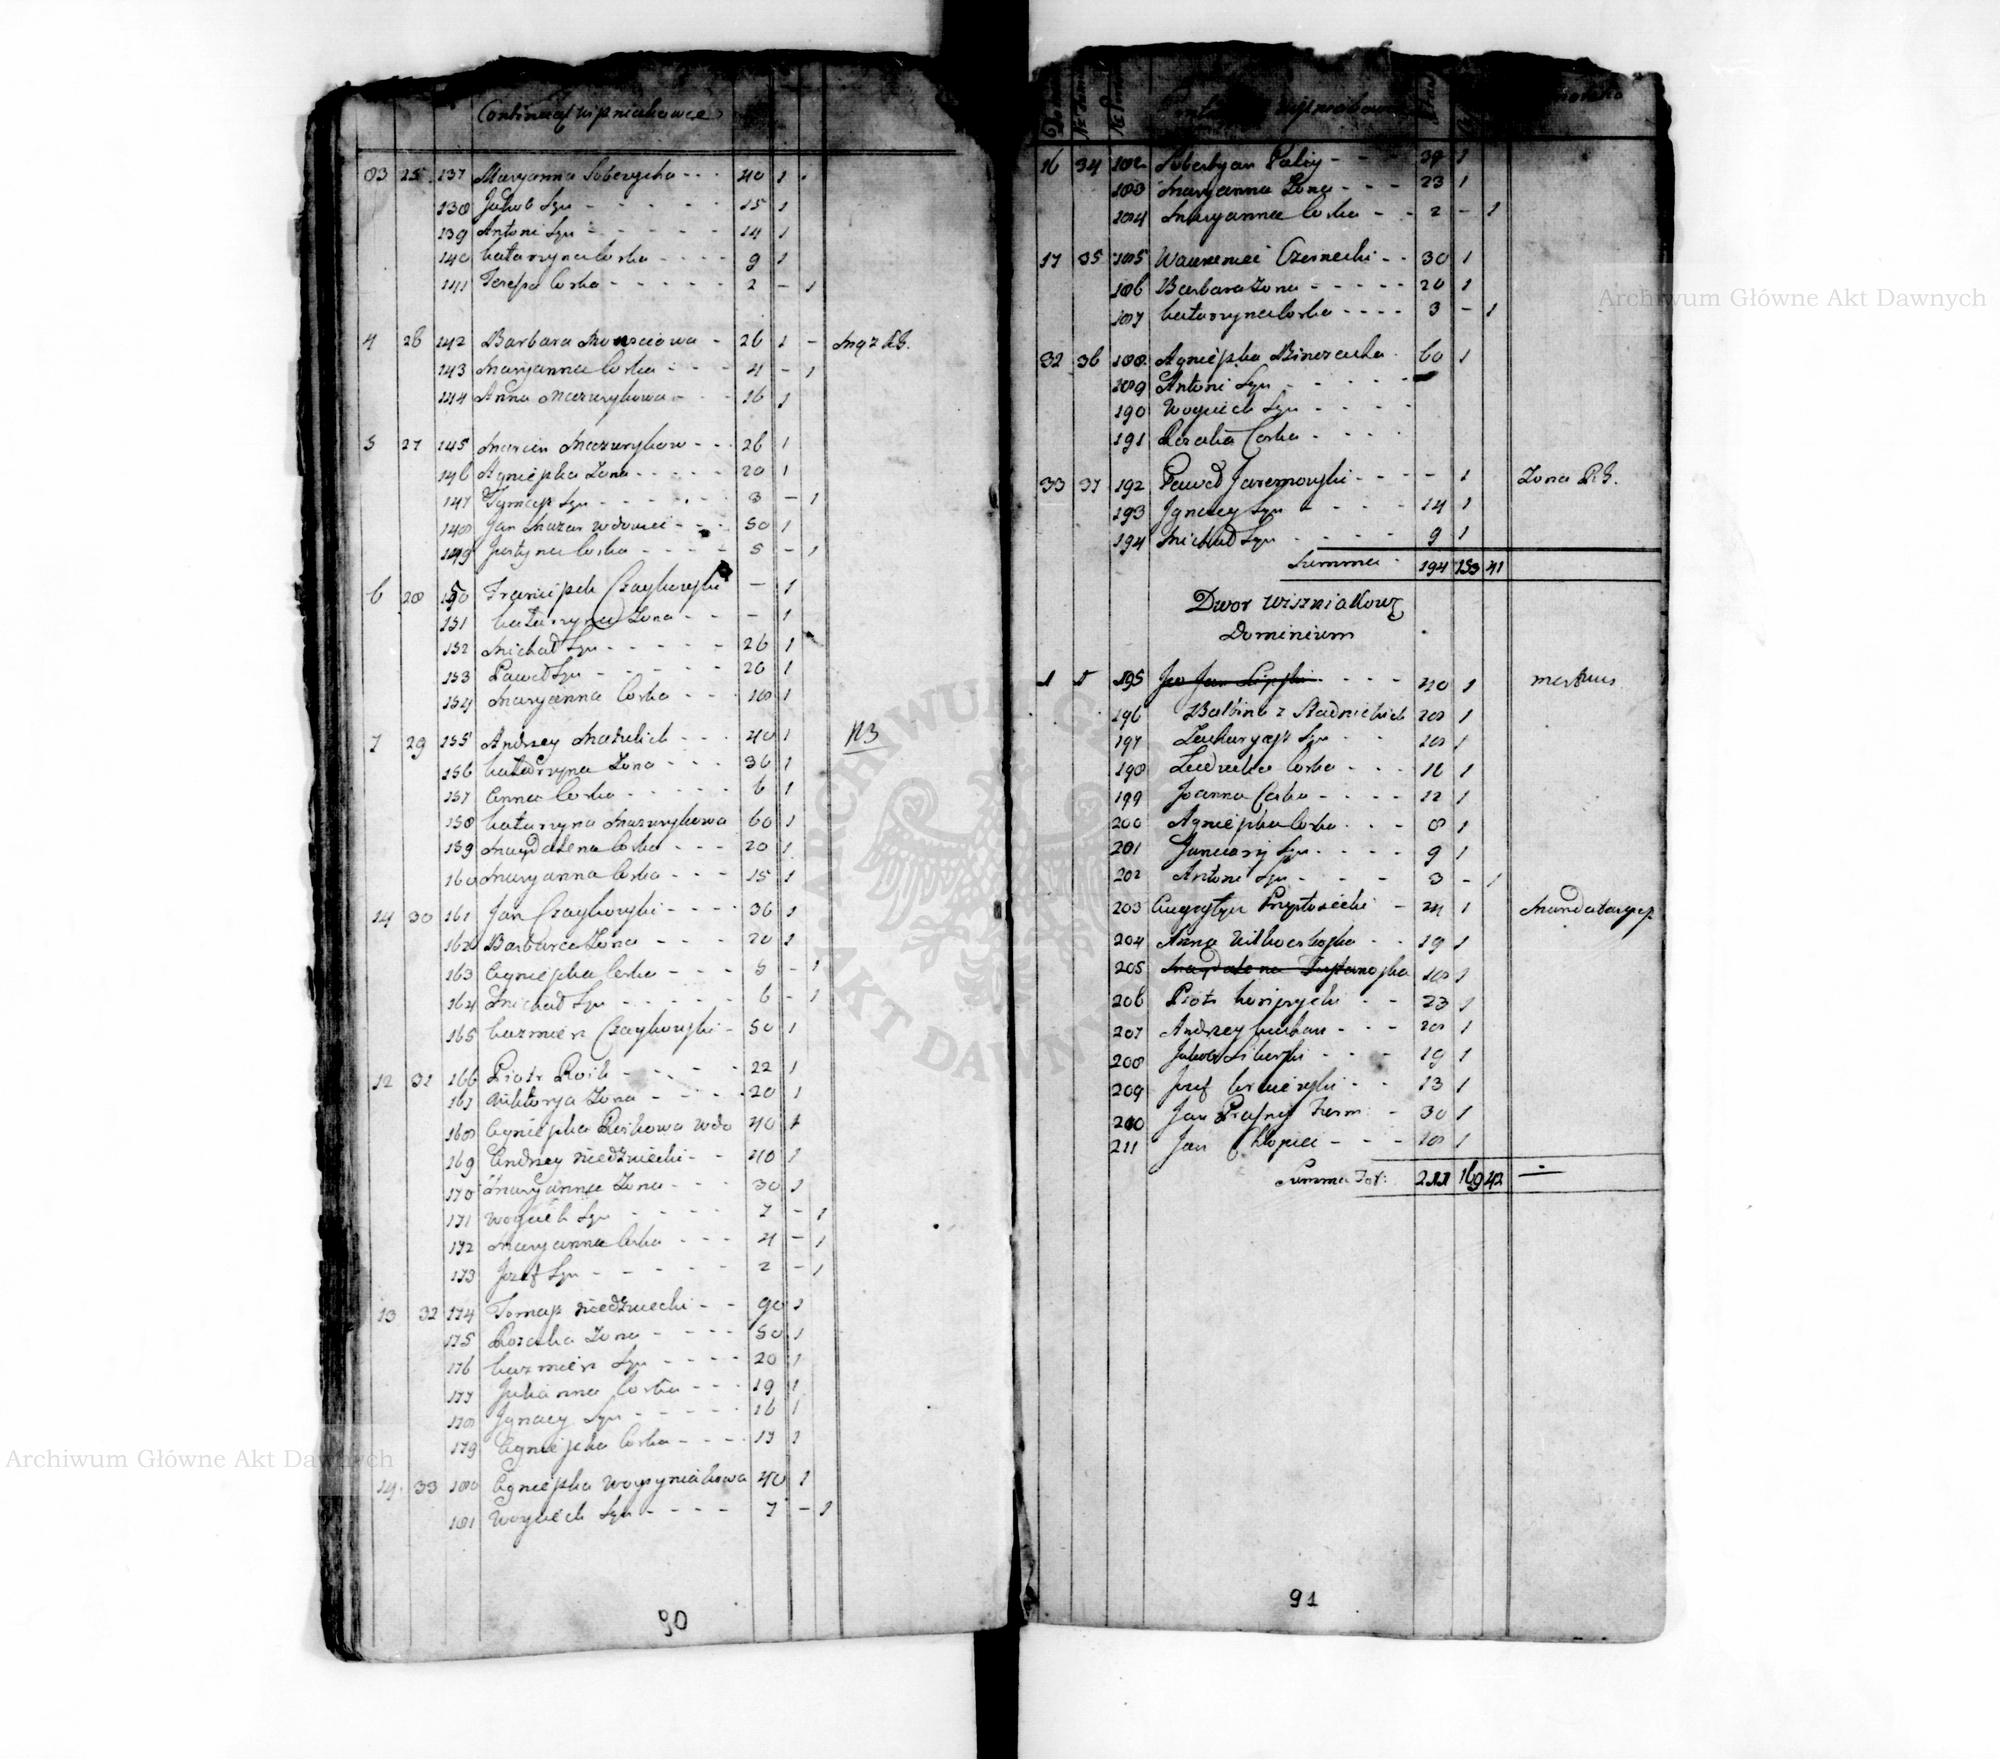 Continuat Wiszniakowce
83 25 137 Maryanna Soberycha 40 1
138 Jakob Syn 15 1
139 Antoni Syn 14 1
140 Katarzyna Corka 9 1
141 Teressa Corka 2 - 1
4 26 142 Barbara 26 1 - Mąz RG.
143 Maryanna Corka 4 - 1
144 Anna Mazurykowa 16 1
5 27 145 Marcin Mazurykow 26 1
146 Agnieszka Zona 20 1
147 Tomasz Syn 3 - 1
148 Jan Mazur wdowiec 50 1
149 Justyna Corka 5 - 1
6 28 150 Franciszek Czaykowski - 1
151 Katarzyna Zona - 1
152 Michał Syn 26 1
153 Paweł Syn 20 1
154 Maryanna Corka 18 1
7 29 155 Andrzey 40 1 N3
156 Katarzyna Zona 36 1
157 Anna Corka 6 1
158 Katarzyna Mazurykowa 60 1
159 Magdalena Corka 20 1
160 Maryanna Corka 15 1
14 30 161 Jan Czaykowski 36 1
162 Barbara Zona 20 1
163 Agnieszka Corka 5 - 1
164 Michał Syn 6 - 1
165 Kazmierz Czaykowski 50 1
12 31 166 Piotr Roik 22 1
167 Wiktorya Zona 20 1
168 Agnieszka Roikowa wdo 40 1
169 Andrzey Niedzwiecki 40 1
170 Maryanna Zona 30 1
171 Woyciech Syn 7 - 1
172 Maryanna Corka 4 - 1
173 Jozef Syn 2 - 1
13 32 174 Tomasz Niedzwiecki 90 1
175 Rozalia Zona 50 1
176 Kazmierz Syn 20 1
177 Julianna Corka 19 1
178 Jgnacy Syn 16 1
179 Agnieszka Corka 17 1
14 33 180 Agnieszka 40 1
181 Woyciech Syn 7 - 1
90
16 34 182 39 1
183 Maryanna Zona 23 1
184 Maryanna Corka 2 - 1
17 35 185 Wawrzeniec Czernecki 30 1
186 Barbara Zona 20 1
187 Katarzyna Corka 3 - 1
32 36 188 Agnieszka 60 1
189 Antoni Syn
190 Woyciech Syn
191 Rozalia Corka
33 37 192 Paweł Jaremowski - 1 Zona RG.
193 Jgnacy Syn 14 1
194 Michał Syn 9 1
Summa 194 153 41
Dwor Wiszniakow
Dominium
1 1 195 Jan Lipski 40 1 mortuus
196 Balbina z Stadnickich 28 1
197 Zacharyasz Syn 18 1
198 Ludwika Corka 16 1
199 Joanna Corka 12 1
200 Agnieszka Corka 8 1
201 Januarij Syn 9 1
202 Antoni Syn 3 - 1
203 Augustyn 24 1 Mandataryusz
204 Anna 19 1
205 Magdalena 18 1
206 Piotr 23 1
207 Andrzey 20 1
208 Jakob 19 1
209 Jozef 13 1
210 Jan 30 1
211 Jan Chłopiec 18 1
Summa Tot: 211 169 42
91
Archiwum Główne Akt Dawnych
Archiwum Główne Akt Dawnych